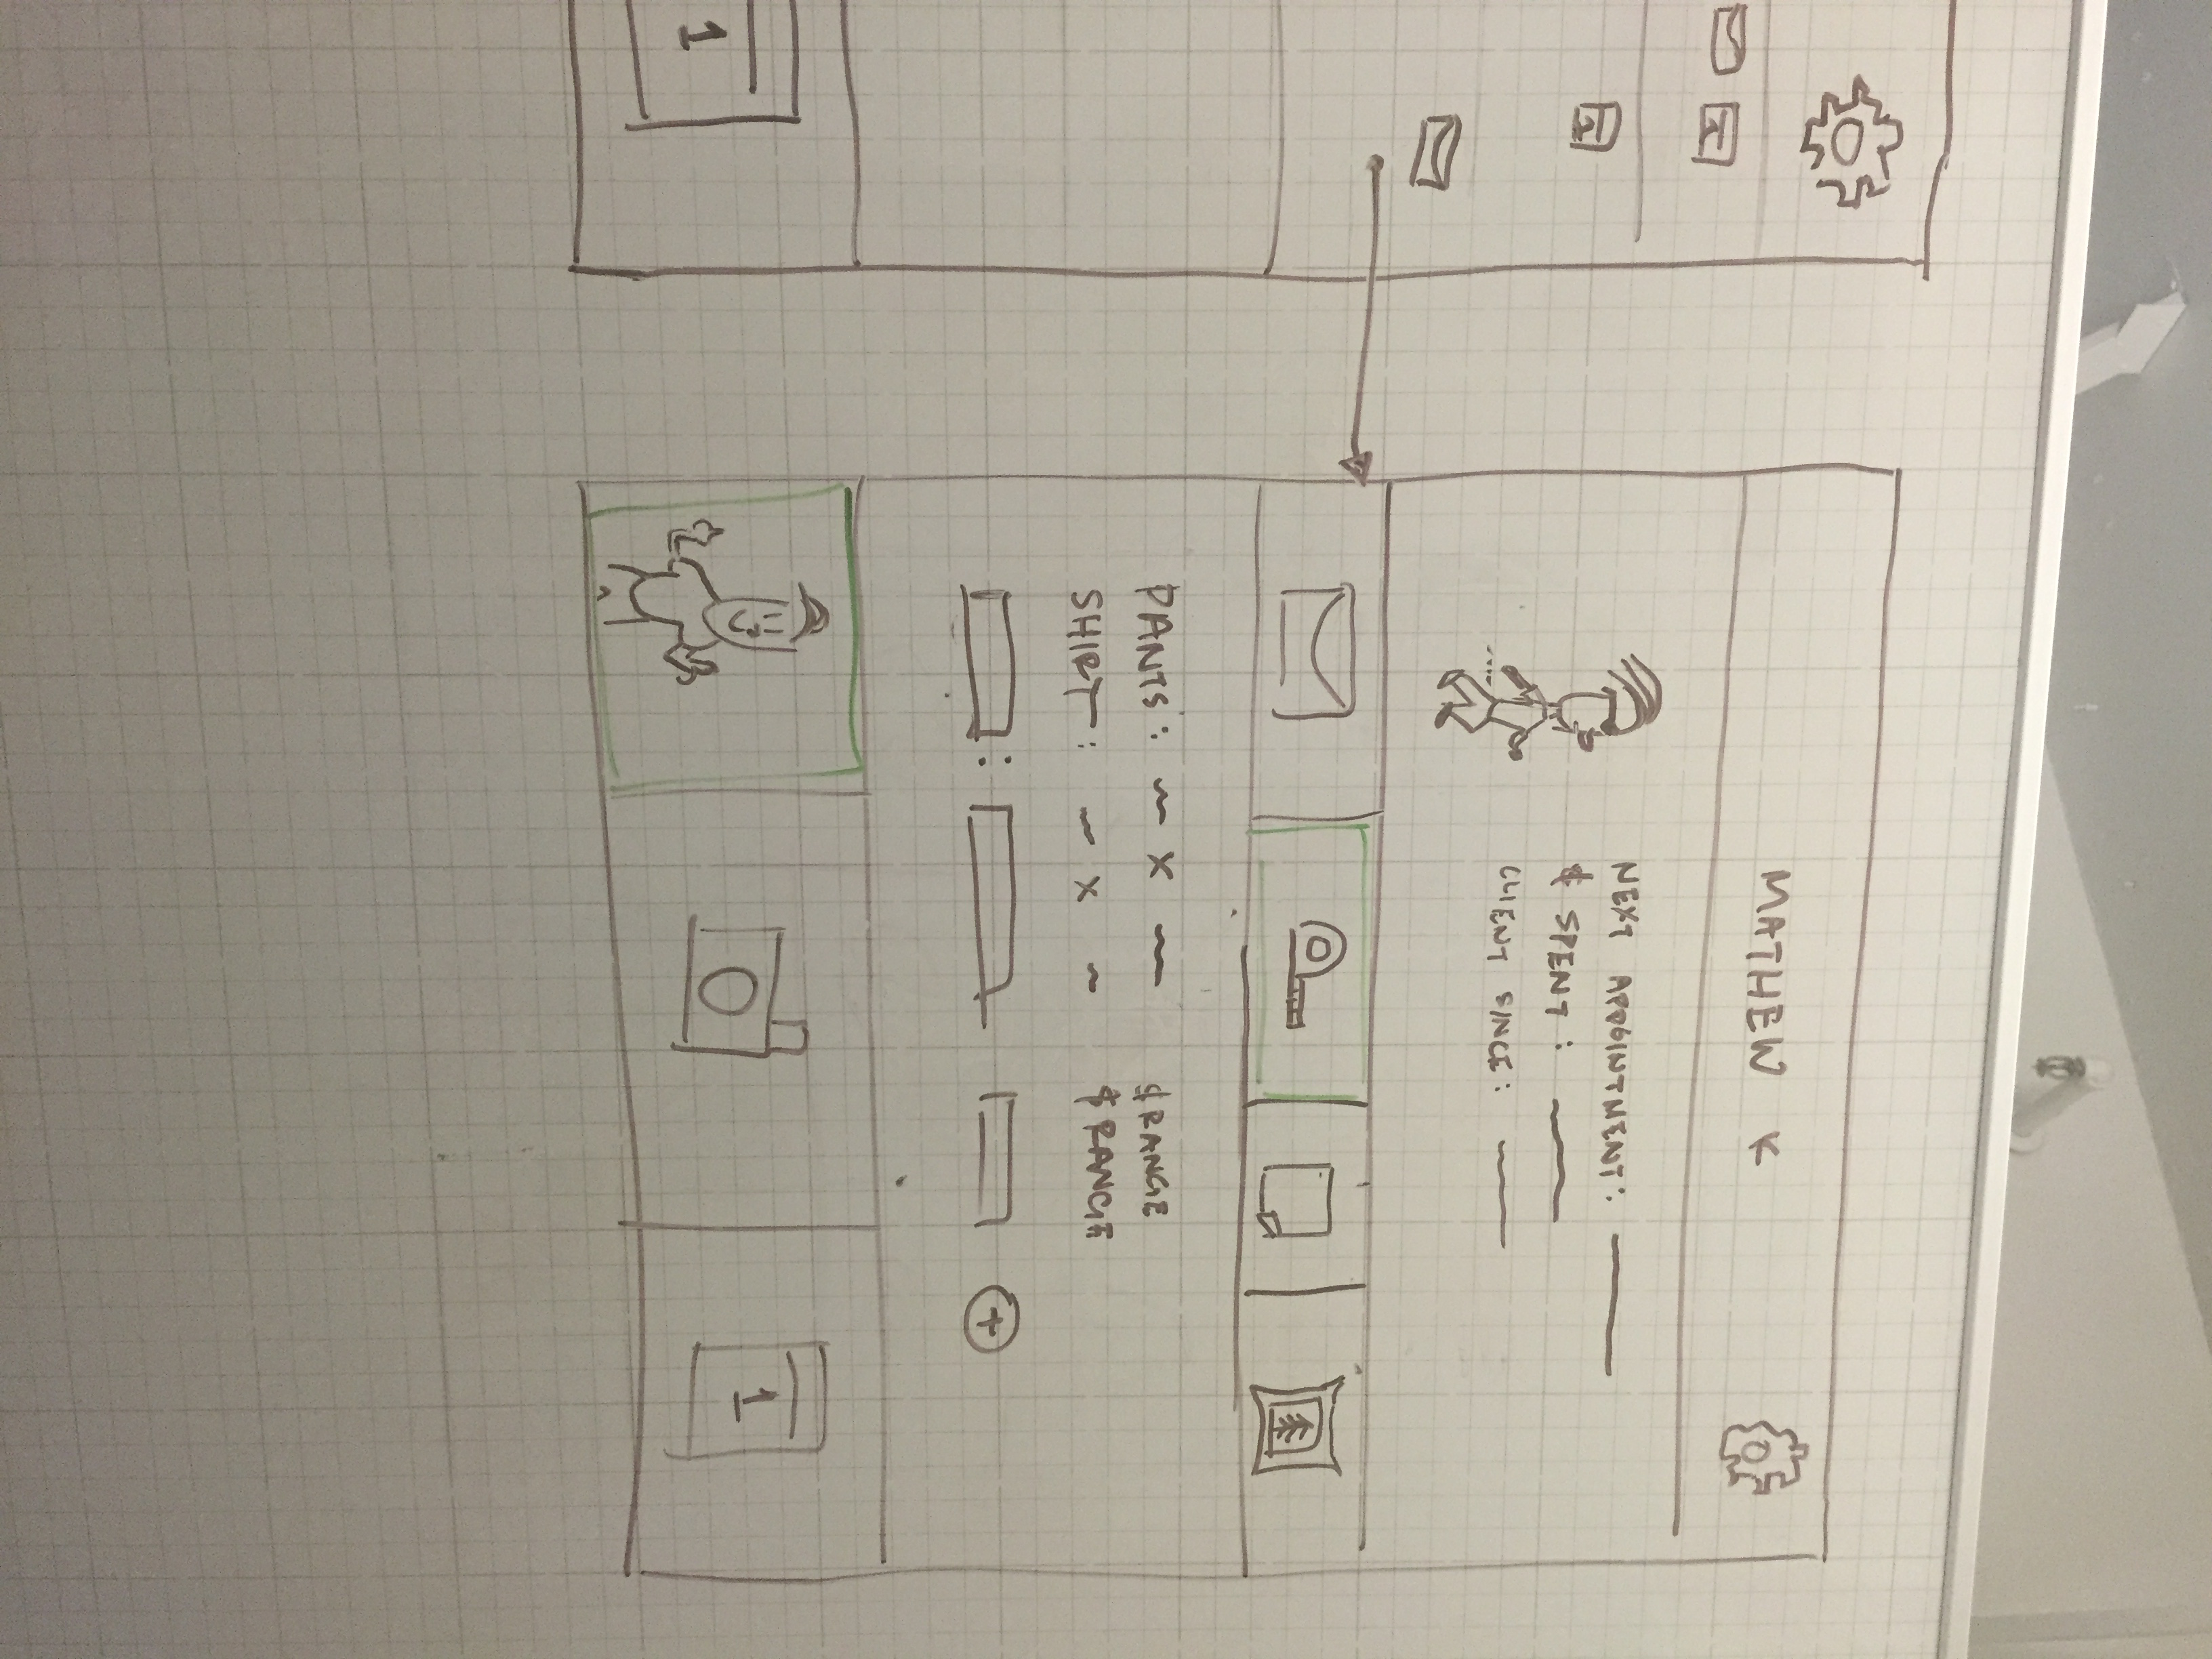 1
MATHEW K
NEXT APPOINTMENT:
$ SPENT:
CLIENT SINCE:
PANTS: x $ RANGE
SHIRT: x $ RANGE
: +
1